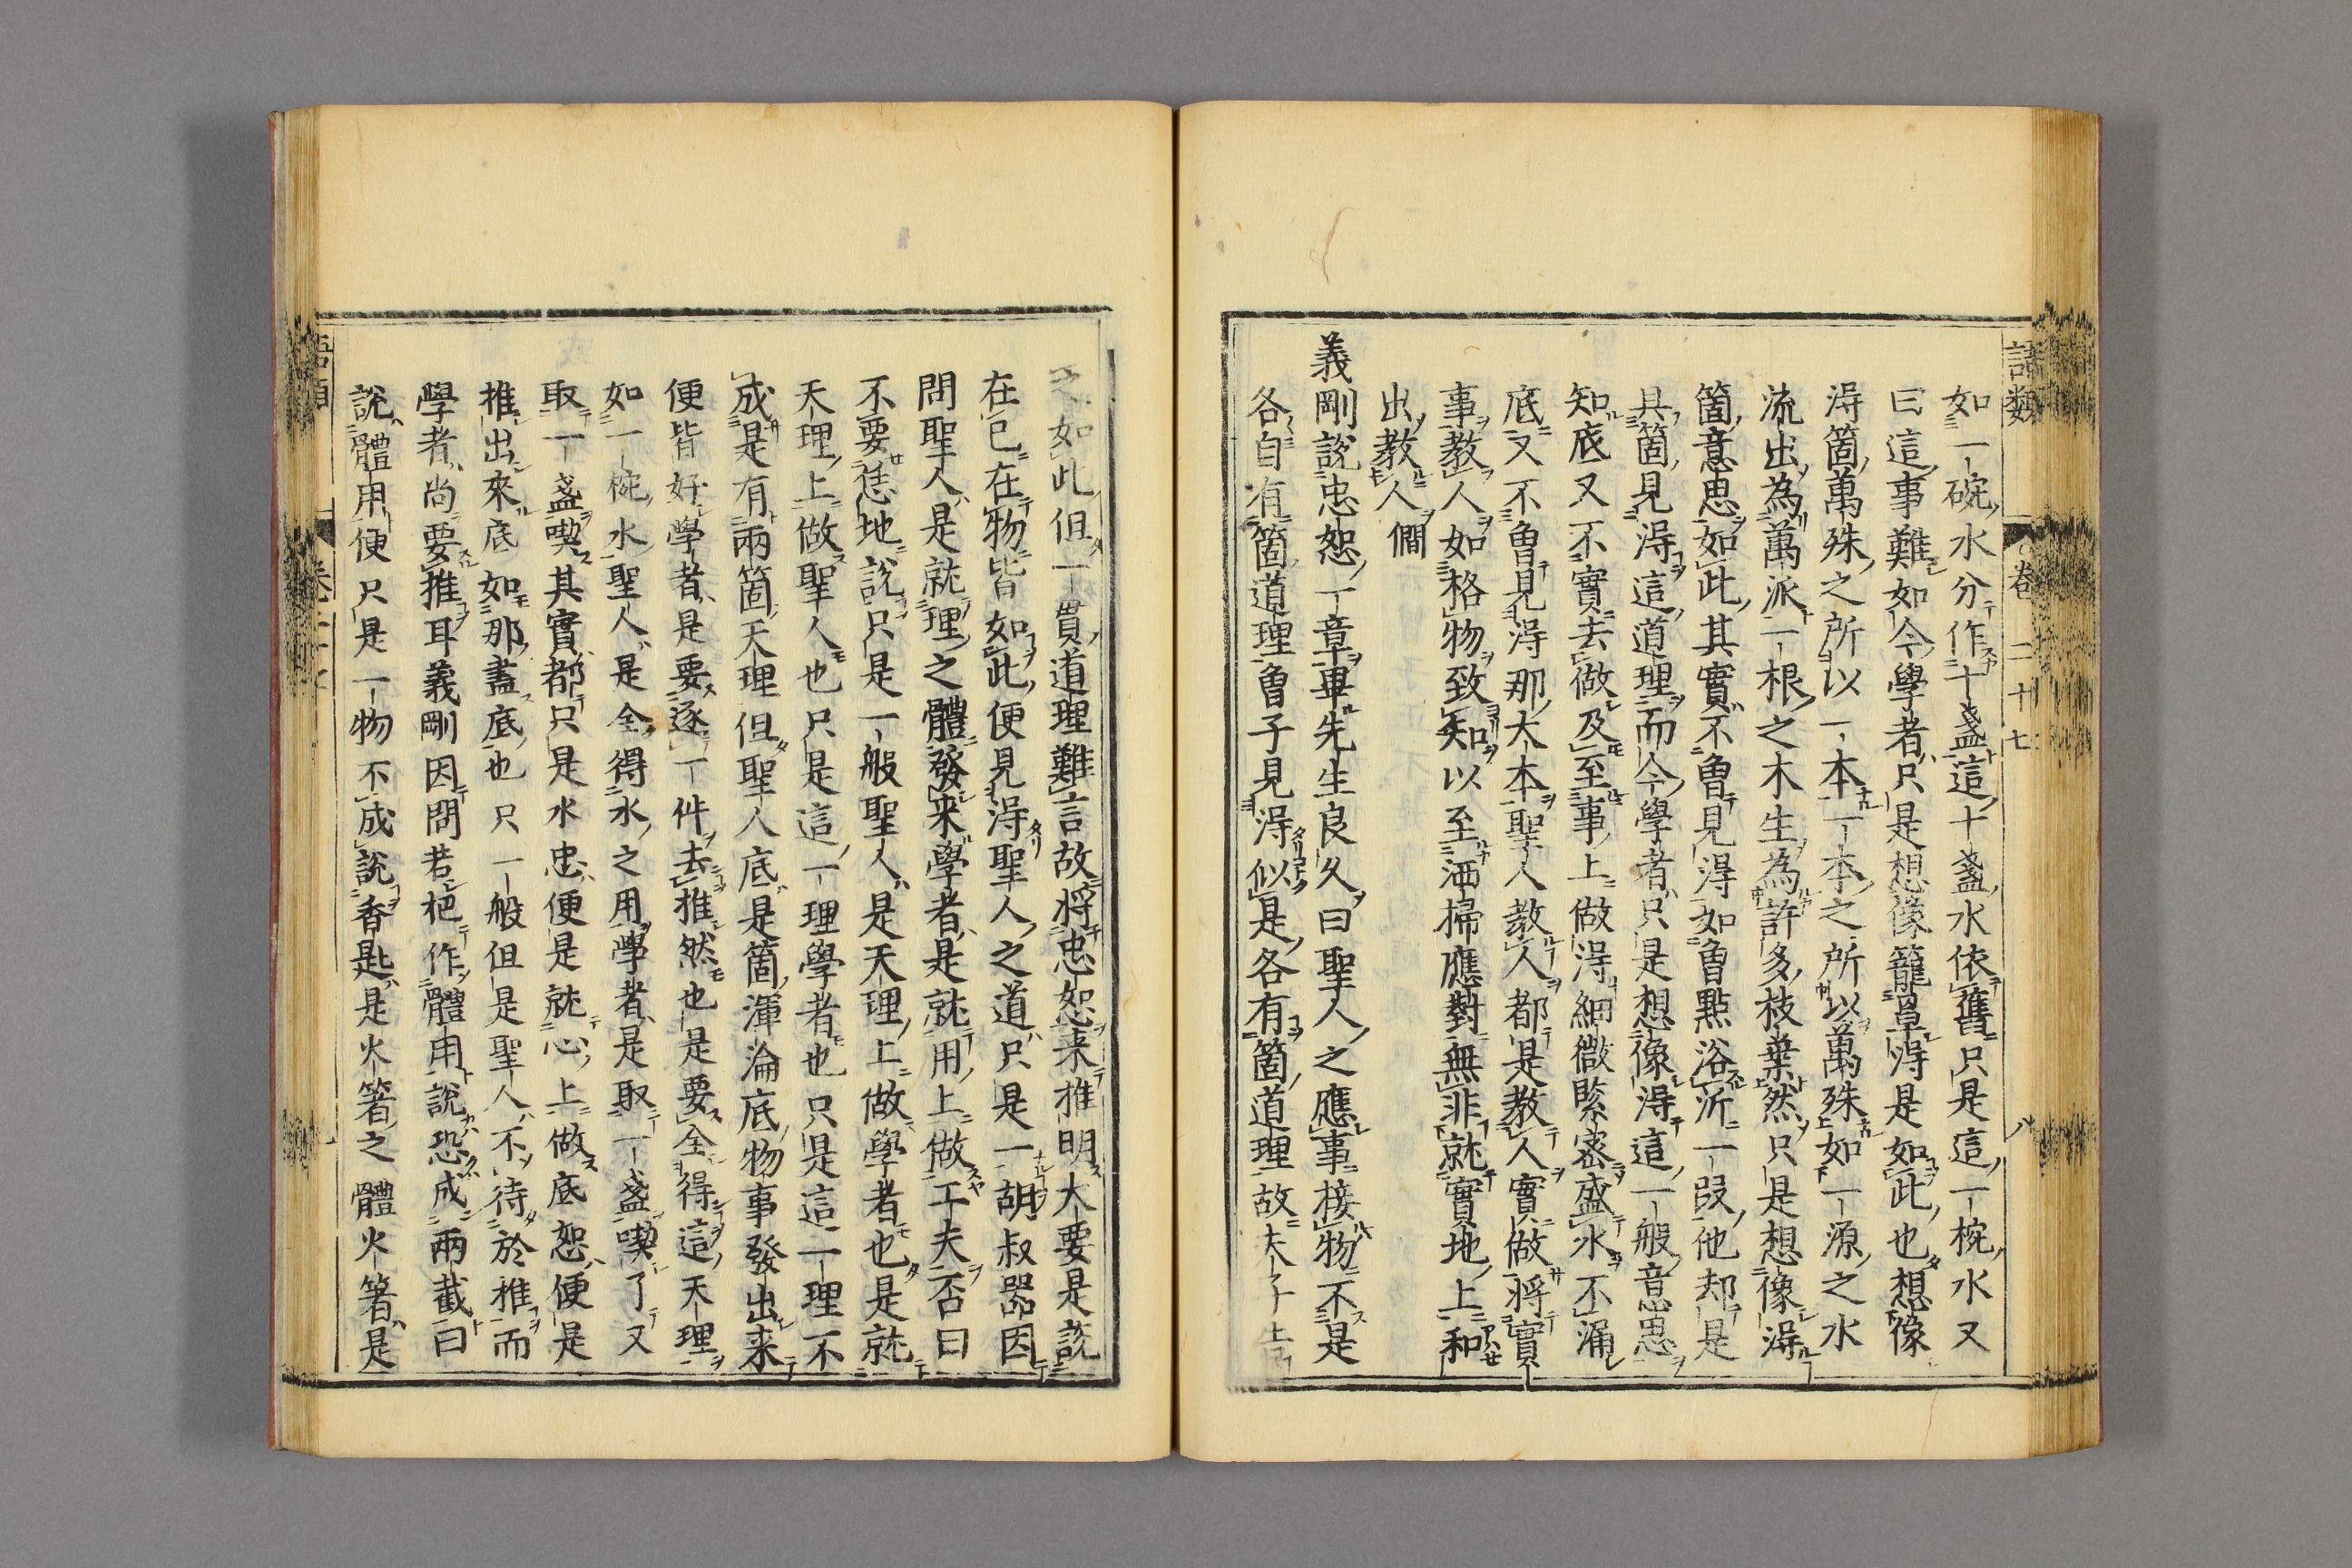 語類 卷二十七 八
如一碗水分作十盞這十盞水依舊只是這一椀水又
曰這事難如今學者只是想像籠罩得是如此也想像
得箇萬殊之所以一本一本之所以萬殊如一源之水
流出為萬派一根之木生為許多枝葉然只是想像得
箇意思如此其實不曾見得如曾點浴沂一段他却是
真箇見得這道理而今學者只是想像得這一般意思
知底又不實去做及至事上做得細微緊密盛水不漏
底又不曾見得那大本聖人教人都是教人實做將實
事教人如格物致知以至洒掃應對無非就實地上和
出教人僩
義剛說忠恕一章畢先生良久曰聖人之應事接物不是
各自有箇道理曾子見得似是各有箇道理故夫子
如此但一貫道理難言故將忠恕来推明大要是說
在己在物皆如此便見得聖人之道只是一胡叔器因
問聖人是就理之體發来學者是就用上做工夫否曰
不要恁地說只是一般聖人是天理上做學者也是就
天理上做聖人也只是這一理學者也只是這一理不
成是有兩箇天理但聖人底是箇渾淪底物事發出来
便皆好學者是要逐一件去推然也是要全得這天理
如一椀水聖人是全得水之用學者是取一盞喫了又
取一盞喫其實都只是水忠便是就心上做底恕便是
推出來底如那盞底也只一般但是聖人不待於推而
學者尚要推耳義剛因問若把作體用說恐成兩截曰
說體用便只是一物不成說香匙是火箸之體火箸是